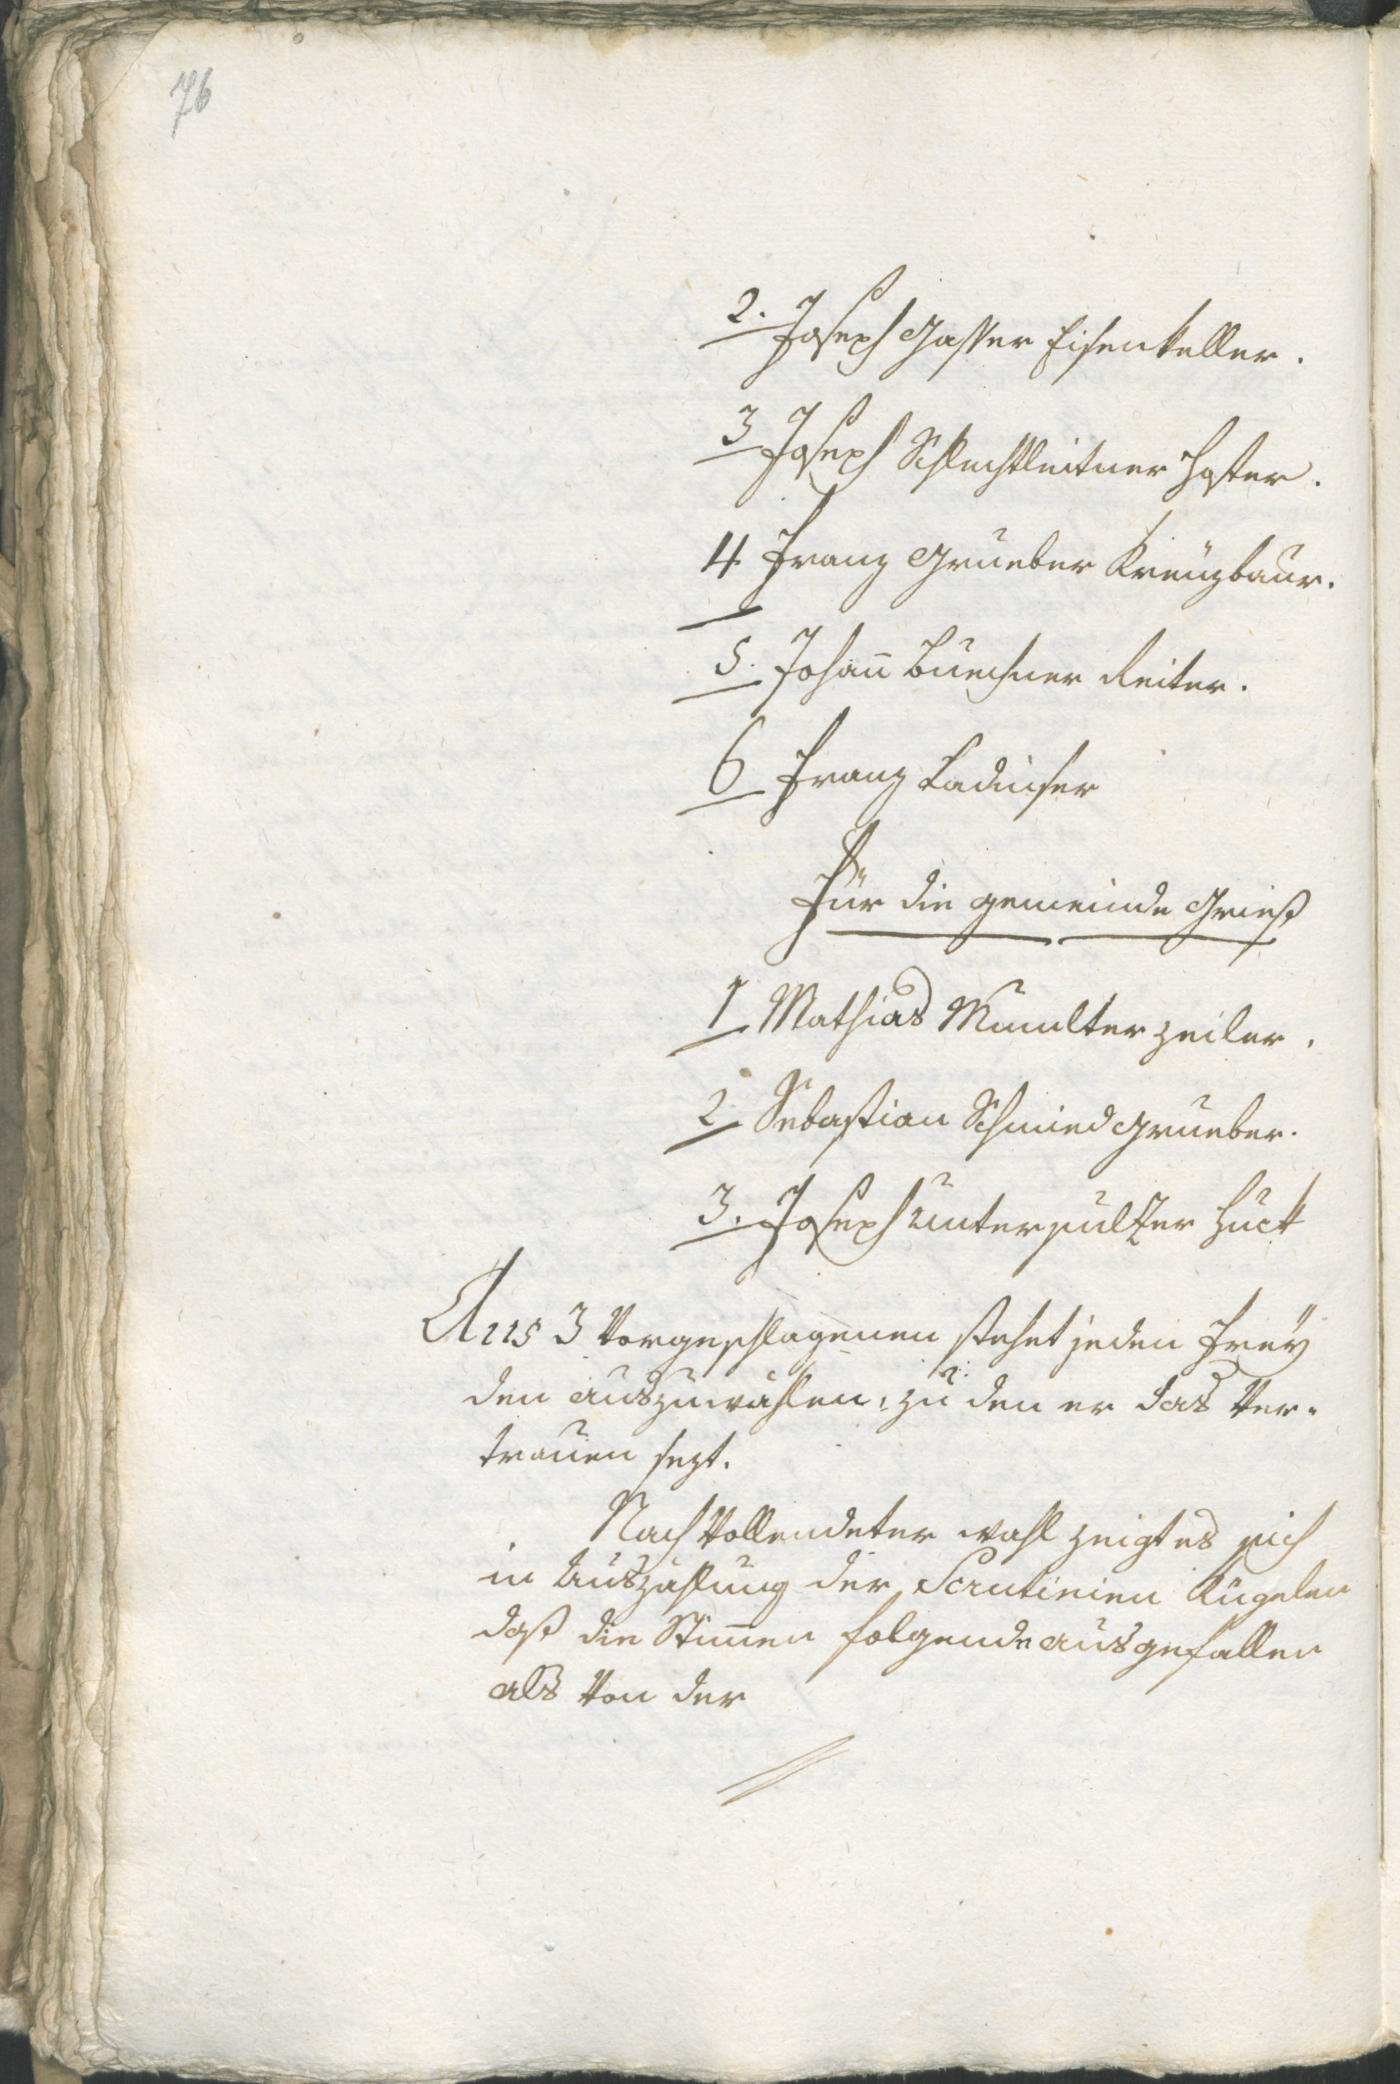 76
2. Joseph Gasser Eisenkeller.
3 Joseph Schlechtleitner Hoster.
4 Franz Grueber Kreuzbaur.
5. Johañ Buechner Reiter.
6 Franz Ladinser
Für die gemeinde Grieß
1 Mathias Mumelter Zeiler.
2 Sebastian Schmied Grueber.
3. Joseph Unterpulzer Huck
Aus 3 Vorgeschlagenen stehet jeden Freÿ
den auszuwählen, zu den er das Ver-
trauen sezt.
Nach Vollendeter wahl zeigt es sich
in Auszählung der Scrutinien Kugelen
daß die Stim̄en folgende ausgefallen
als Von der